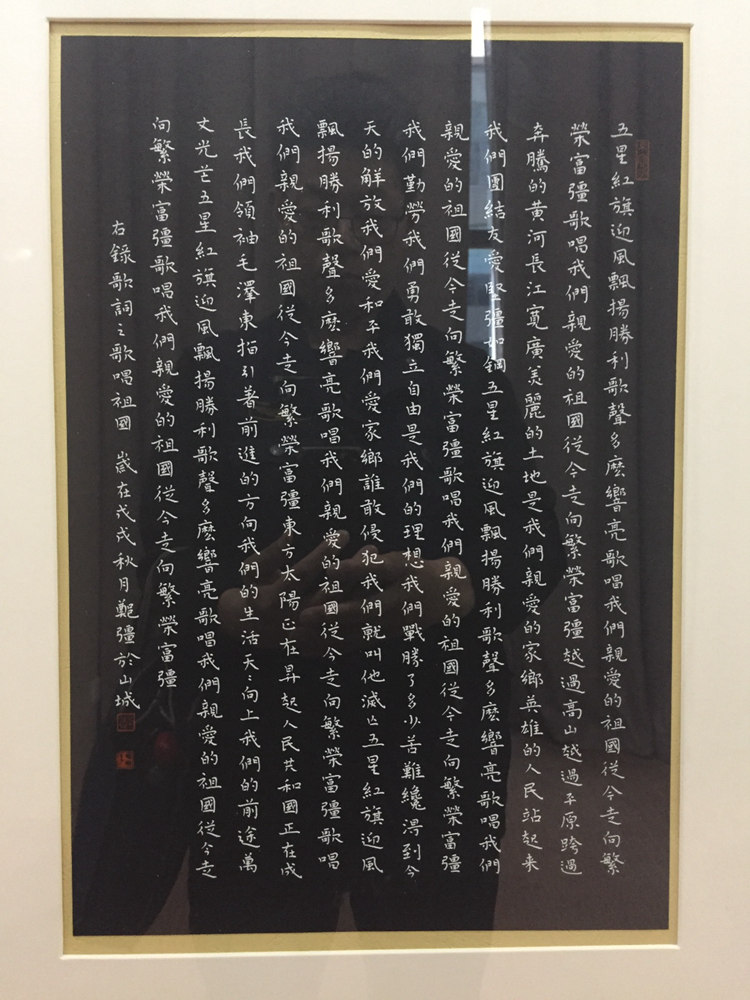 五星紅旗迎風飄揚勝利歌聲多麽響亮歌唱我們親愛的祖國從今走向繁
榮富疆歌唱我們親愛的祖國從今走向繁榮富疆越過高山越過平原跨過
奔騰的黄河長江寬廣美麗的土地是我們親愛的家鄉英雄的人民站起来
我們團結友愛堅疆如鋼五星紅旗迎風飄揚勝利歌聲多麽響亮歌唱我們
親愛的祖國從今走向繁榮富疆歌唱我們親愛的祖國從今走向繁榮富疆
我們勤勞我們勇敢獨立自由是我們的理想我們戰勝了多少苦難纔得到今
天的解放我們愛和平我們愛家鄉誰敢侵犯我們就叫他滅亡五星紅旗迎風
飄揚勝利歌聲多麽響亮歌唱我們親愛的祖國從今走向繁榮富疆歌唱
我們親愛的祖國從今走向繁榮富疆東方太陽正在昇起人民共和國正在成
長我們領袖毛澤東指引著前進的方向我們的生活天〻向上我們的前途萬
丈光芒五星紅旗迎風飄揚勝利歌聲多麽響亮歌唱我們親愛的祖國從今走
向繁榮富疆歌唱我們親愛的祖國從今走向繁榮富疆
右錄歌詞之歌唱祖國 歲在戊戌秋月鄭疆於山城